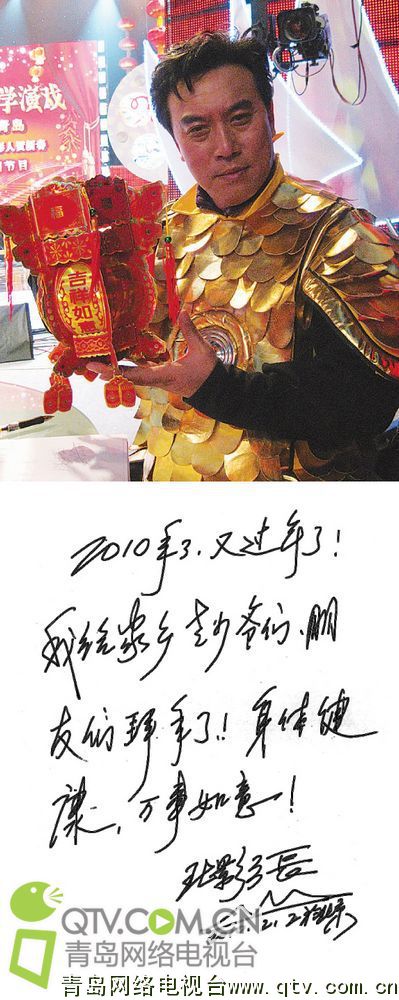 学演戏
青岛
人贺新春
节目
福
吉祥
如意
2010年了、又过年了!
我给家乡老少爷们、朋
友们拜年了!身体健
康,万事如意!
QTV.COM.CN
青岛网络电视台
青岛网络电视台www.qtv.com.cn